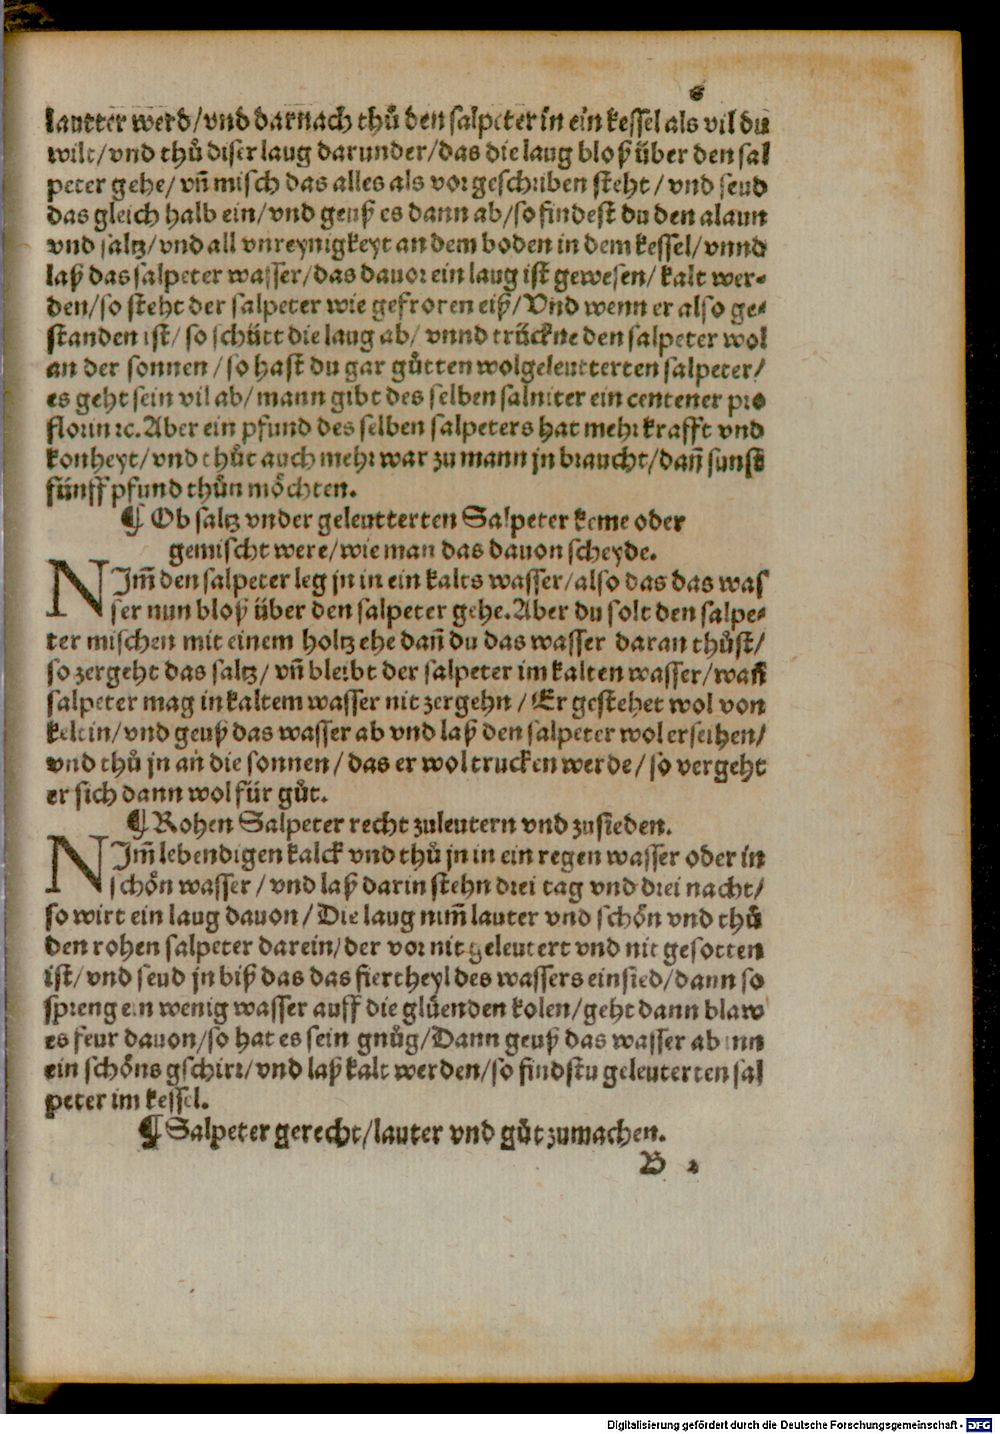 6
lautter werd/vnd darnach thů den salpeter in ein kessel als vil du
wilt/vnd thů diser laug darunder/das die laug bloß über den sal
peter gehe/vñ misch das alles als vorgeschriben steht/vnd seud
das gleich halb ein/vnd geuß es dann ab/so findest du den alaun
vnd saltz/vnd all vnreynigkeyt an dem boden in dem kessel/vnnd
laß das salpeter wasser/das dauor ein laug ist gewesen/kalt wer-
den/so steht der salpeter wie gefroren eiß/Vnd wenn er also ge-
standen ist/so schütt die laug ab/vnnd trückne den salpeter wol
an der sonnen/so hast du gar gůtten wolgeleutterten salpeter/
es geht sein vil ab/mann gibt des selben salniter ein centener pro
florin ꝛc. Aber ein pfund des selben salpeters hat mehr krafft vnd
konheyt/vnd thůt auch mehr war zu mann jn braucht/dañ sunst
fünff pfund thůn möchten.
¶ Ob saltz vnder geleutterten Salpeter keme oder
gemischt were/wie man das dauon scheyde.
NIm̃ den salpeter leg jn in ein kalts wasser/also das das was
ser nun bloß über den salpeter gehe. Aber du solt den salpe-
ter mischen mit einem holtz ehe dañ du das wasser daran thůst/
so zergeht das saltz/vñ bleibt der salpeter im kalten wasser/wañ
salpeter mag in kaltem wasser nit zergehn/Er gestehet wol von
keltin/vnd geuß das wasser ab vnd laß den salpeter wol erseihen/
vnd thů jn an die sonnen/das er wol trucken werde/so vergeht
er sich dann wol für gůt.
¶ Rohen Salpeter recht zuleutern vnd zusieden.
NIm̃ lebendigen kalck vnd thů jn in ein regen wasser oder in
schön wasser/vnd laß darin stehn drei tag vnd drei nacht/
so wirt ein laug dauon/Die laug nim̃ lauter vnd schön vnd thů
den rohen salpeter darein/der vor nit geleutert vnd nit gesotten
ist/vnd seud jn biß das das fiertheyl des wassers einsied/dann so
spreng ein wenig wasser auff die glüenden kolen/geht dann blaw
es feur dauon/so hat es sein gnůg/Dann geuß das wasser ab inn
ein schöns gschirr/vnd laß kalt werden/so findstu geleuterten sal
peter im kessel.
¶ Salpeter gerecht/lauter vnd gůt zumachen.
B 2
Digitalisierung gefördert durch die Deutsche Forschungsgemeinschaft - DFG